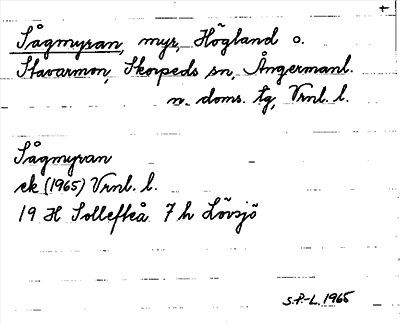 +
Sågmyran, myr, Högland o.
Stavarmon, Skorpeds sn, Ångermanl.
n. doms. tg, Vrnl. l.
Sågmyran
ek (1965) Vrnl. l.
19 H Sollefteå 7 h Lövsjö
S.P-L. 1965